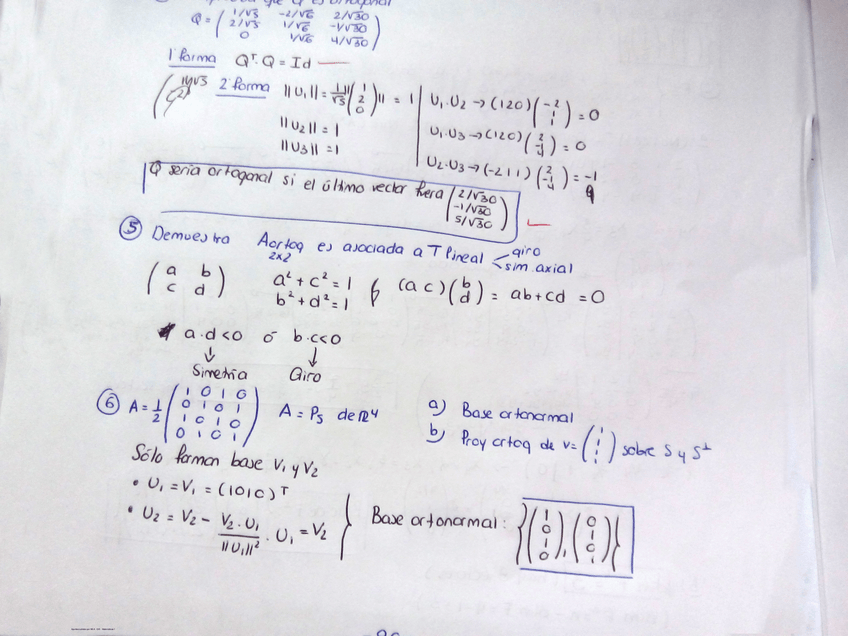 que Q es ortogonal
Q = ( 1/√5 -2/√6 2/√30
2/√5 1/√6 -1/√30
0 1/√6 4/√30 )
1ª forma Qᵀ·Q = Id
2ª forma ||U₁|| = 1/√5 ||(1 2 0)|| = 1
||U₂|| = 1
||U₃|| = 1
U₁·U₂ → (1 2 0) (-2 1 1) = 0
U₁·U₃ → (1 2 0) (2 -1 4) = 0
U₂·U₃ → (-2 1 1) (2 -1 4) = -1
Q sería ortogonal si el último vector fuera (2/√30 -1/√30 5/√30)
⑤ Demuestra A ortog es asociada a T lineal < giro
2x2 sim. axial
(a b
c d) a² + c² = 1
b² + d² = 1 (a c) (b d) = ab + cd = 0
a·d<0 ó b·c<0
↓ ↓
Simetría Giro
⑥ A = 1/2 (1 0 1 0
0 1 0 1
1 0 1 0
0 1 0 1) A = Ps de R⁴
a) Base ortonormal
b) Proy ortog de v = (1 1 1 1) sobre S y S⊥
Sólo forman base V₁ y V₂
• U₁ = V₁ = (1 0 1 0)ᵀ
• U₂ = V₂ - V₂·U₁ / ||U₁||² · U₁ = V₂
Base ortonormal: {(1 0 1 0), (0 1 0 1)}